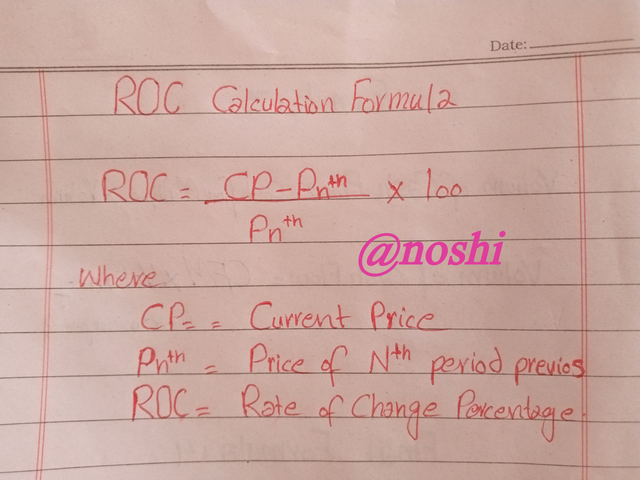 Date:
ROC Calculation Formula
ROC = CP - Pnth / Pnth × 100
@noshi
Where
CP = = Current Price
Pnth = Price of Nth period previos
ROC = Rate of Change Percentage.